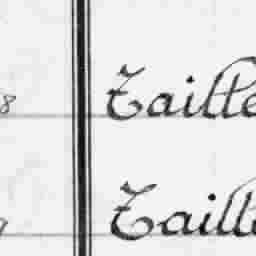 8 Taille
Taille